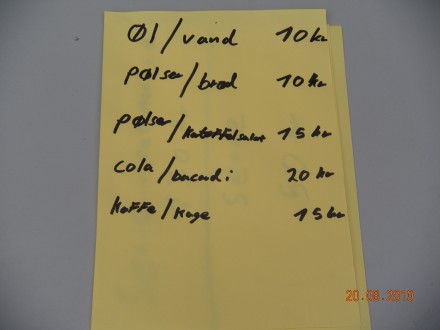 Øl/vand 10 kr
pølser/brød 10 kr
pølser/kartoffelsalat 15 kr
cola/bacardi 20 kr
kaffe/kage 15 kr
20.08.2010